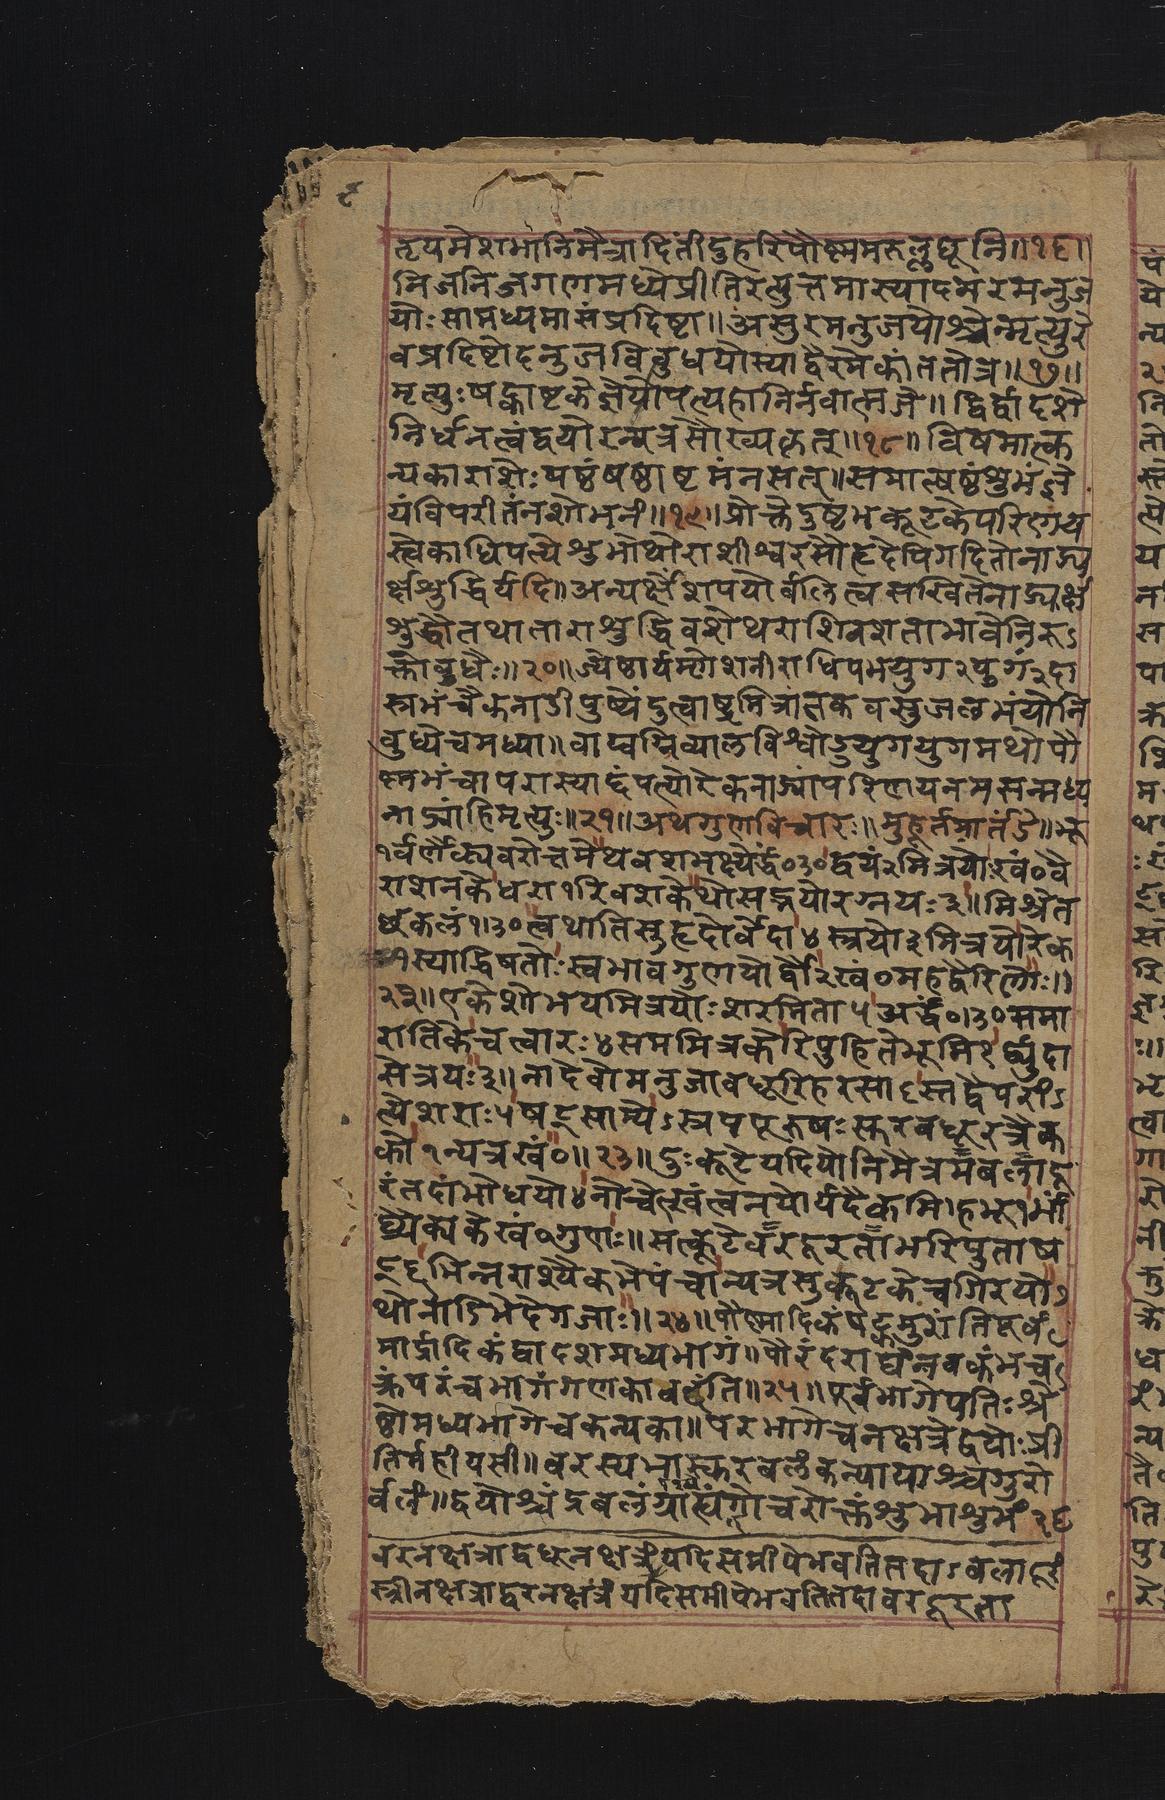 ९
तृपमेशभानिमैत्रादितीदुहरिपौष्ममरुल्लघूनि॥१६॥
निजनिजगणमध्येप्रीतिरत्युत्तमास्यादमरमनुज
योःसामध्यमासंप्रदिष्टा॥असुरमनुजयोश्चेन्मृत्युरे
वप्रदिष्टोदनुजविबुधयोस्याद्वैरमेकांततोत्र॥१७॥
मृत्युःषट्काष्टकेज्ञेयोपत्यहानिर्नवात्मजे॥द्विर्द्वादशे
निर्धनत्वंद्वयोरन्यत्रसौख्यकृत्॥१८॥विषमात्क
न्यकाराशेःषष्ठंषष्ठाष्टमंनसत्॥समात्षष्ठंशुभंज्ञे
यंविपरीतंनशोभनं॥१९॥प्रोक्तेदुष्टभकूटकेपरिणय
स्त्वेकाधिपत्येशुभोथोराशीश्वरसौहृदेपिगदितोनाड्य
र्क्षशुद्धिर्यदि॥अन्यर्क्षेंशपयोर्बलित्वसखितेनाड्यर्क्ष
शुद्धौतथाताराशुद्धिवशेथराशिवशताभावेनिरुऽ
क्तोबुधैः॥२०॥ज्येष्ठार्यम्णेशनीराधिपभयुग२युगं२दा
स्रभंचैकनाडीपुष्येंदुत्वाष्ट्रमित्रांतकवसुजलभंयोनि
बुध्येचमध्या॥वाय्वग्निव्यालविश्वोडुयुगयुगमथोपौ
ष्णभंचापरास्याद्दंपत्योरेकनाड्यांपरिणयनमसन्मध्य
नाड्यांहिमृत्युः॥२१॥अथगुणविचारः॥मुहूर्तमार्तंडे॥भू
१र्वर्णैक्यवरोत्तमेथवशभक्ष्येर्द्धं०३०द्वयं२मित्रयोःखं०वै
राशनकेधरा१रिवशकेथोसद्भयोरग्नयः३॥मिश्रेत
र्ध्धकलं१।३०त्वथातिसुहृदोर्वेदा४स्त्रयो३मित्रयोरेक
१स्याद्द्विषतोःस्वभावगुणयोर्द्वौ२खं०महद्वैरिणोः॥
२२॥एकेशोभयमित्रयोःशरमिता५अर्द्धं०।३०समा
रातिकेचत्वारः४सममित्रकेरिपुहितेभूमि१र्द्व्युदा
सेत्रयः३॥नादेवोमनुजावधूरिहरसाऽस्तद्वैपरीऽ
त्येशराः५षट्साम्येऽस्त्रपपूरुषःस्फरवधूरत्रैक
को१न्यत्रखं०॥२३॥दुःकूटेयदियोनिमैत्रमबलादू
रंतदांभोधयो४नोचेत्खंत्वनयोर्यदैकमिहभू१र्भां
घ्र्यैक्यकेखं०गुणः॥सत्कूटेवरदूरताभरिपुताष
ट्६भिन्नराश्यैकभेपंचान्यत्रसुकूटकेचगिरयोऽ
थोनाडिभेदेगजाः॥२४॥पौष्णादिकंषट्कमुशंतिपूर्वं
मार्द्रादिकंद्वादशमध्यभागं॥पौरंदराद्यंनवकंभच
क्रंपरंचभागंगणकावदंति॥२५॥पूर्वभागेपतिःश्रे
ष्ठोमध्यभागेचकन्यका॥परभागेचनक्षत्रेद्वयोःप्री
तिर्महीयसी॥वरस्यभास्करबलंकन्यायाश्चगुरो
र्बलं॥द्वयोश्चंद्रबलंग्राह्यंगोचरोक्तंशुभाशुभं२६
वरनक्षत्राद्वधूनक्षत्रंयदिसमीपेभवतितदाऽबलादूरं
स्त्रीनक्षत्राद्वरनक्षत्रंयदिसमीपेभवतितदावरदूरता